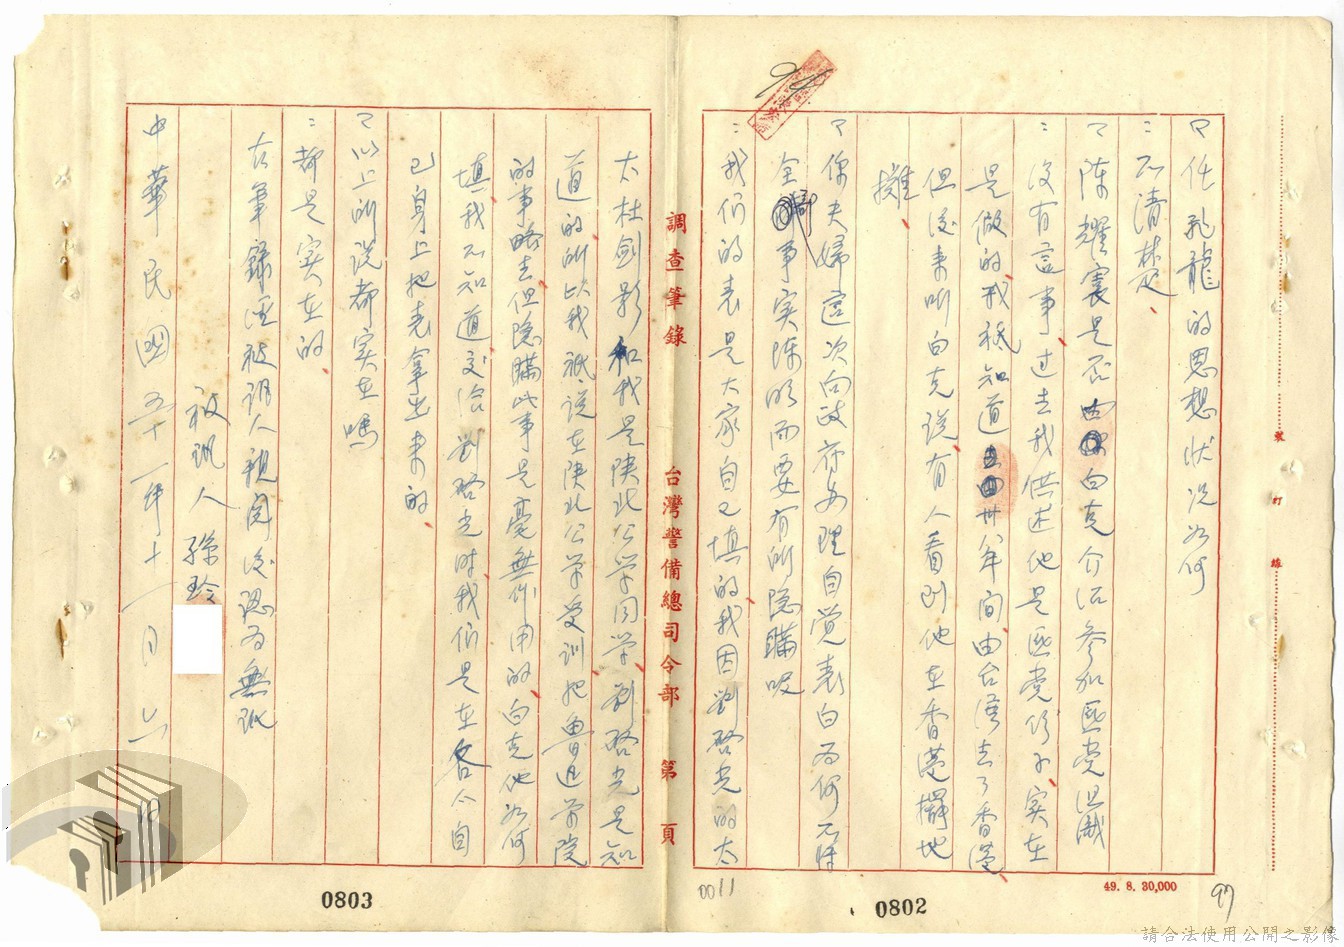 任孔龍的思想狀况为何
不清楚
陈耀寰是否由白克介沼参加匪党组織
没有這事过去我供述他是匪党份子实在
是做的我祇知道卅八年間由台湾去了香港
但後来听白克说有人看到他在香港擺地
攤
你夫婦這次向政府办理自觉表白为何不将
全部事实陈明而要有所隐瞞呢
我们的表是大家自己填的我因劉啓光的太
調查筆錄　台灣警備總司令部　第　頁
太杜剑影和我是陕北公学同学劉啓光是知
道的所以我祇说在陕北公学受訓把魯迅学院
的事略去但隐瞞此事是毫無作用的白克他如何
填我不知道交给劉啓光时我们是在各人自
己身上把表拿出来的
以上所说都实在嗎
都是实在的
右筆錄經被訊人親閱後認为無訛
被訊人 孫玲
中華民國五十一年十一月六日
裝訂線
49. 8. 30,000
97
0011
0802
0803
請合法使用公開之影像